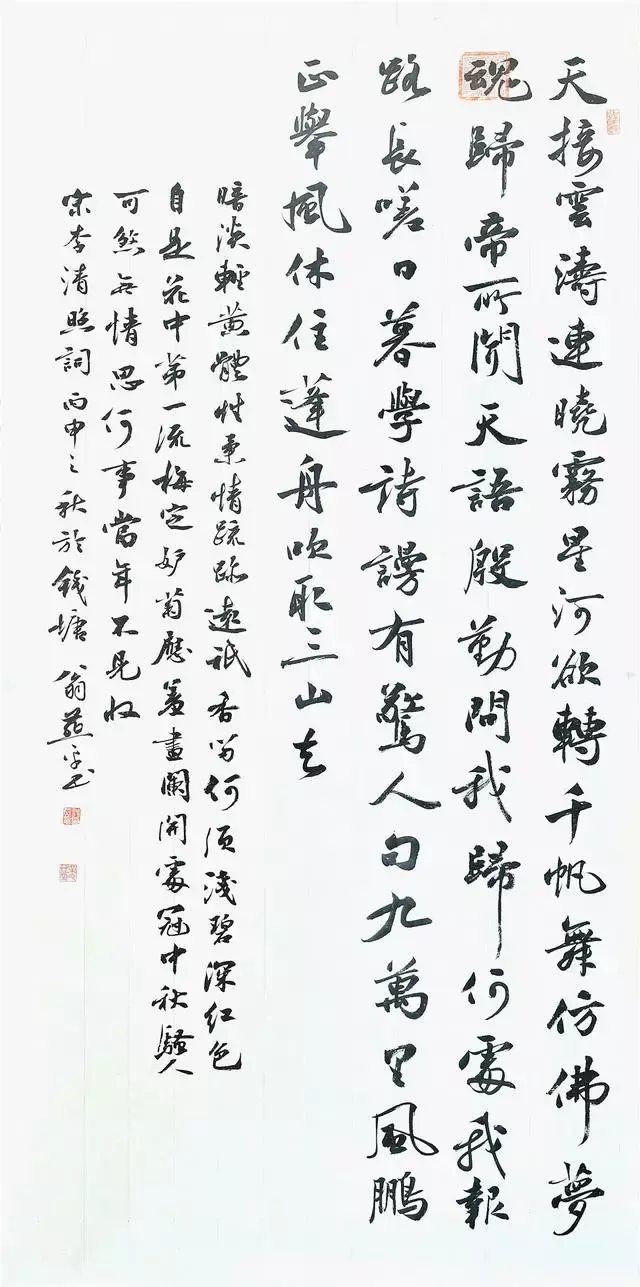 天接雲濤連曉霧星河欲轉千帆舞仿佛夢
魂歸帝所聞天語殷勤問我歸何處我報
路長嗟日暮學詩謾有驚人句九萬里風鵬
正舉風休住蓬舟吹取三山去
暗淡輕黃體性柔情疏跡遠祇香留何須淺碧深紅色
自是花中第一流梅定妒菊應羞畫闌開處冠中秋騷人
可煞無情思何事當年不見收
宋李清照詞丙申之秋於錢塘翁燕書